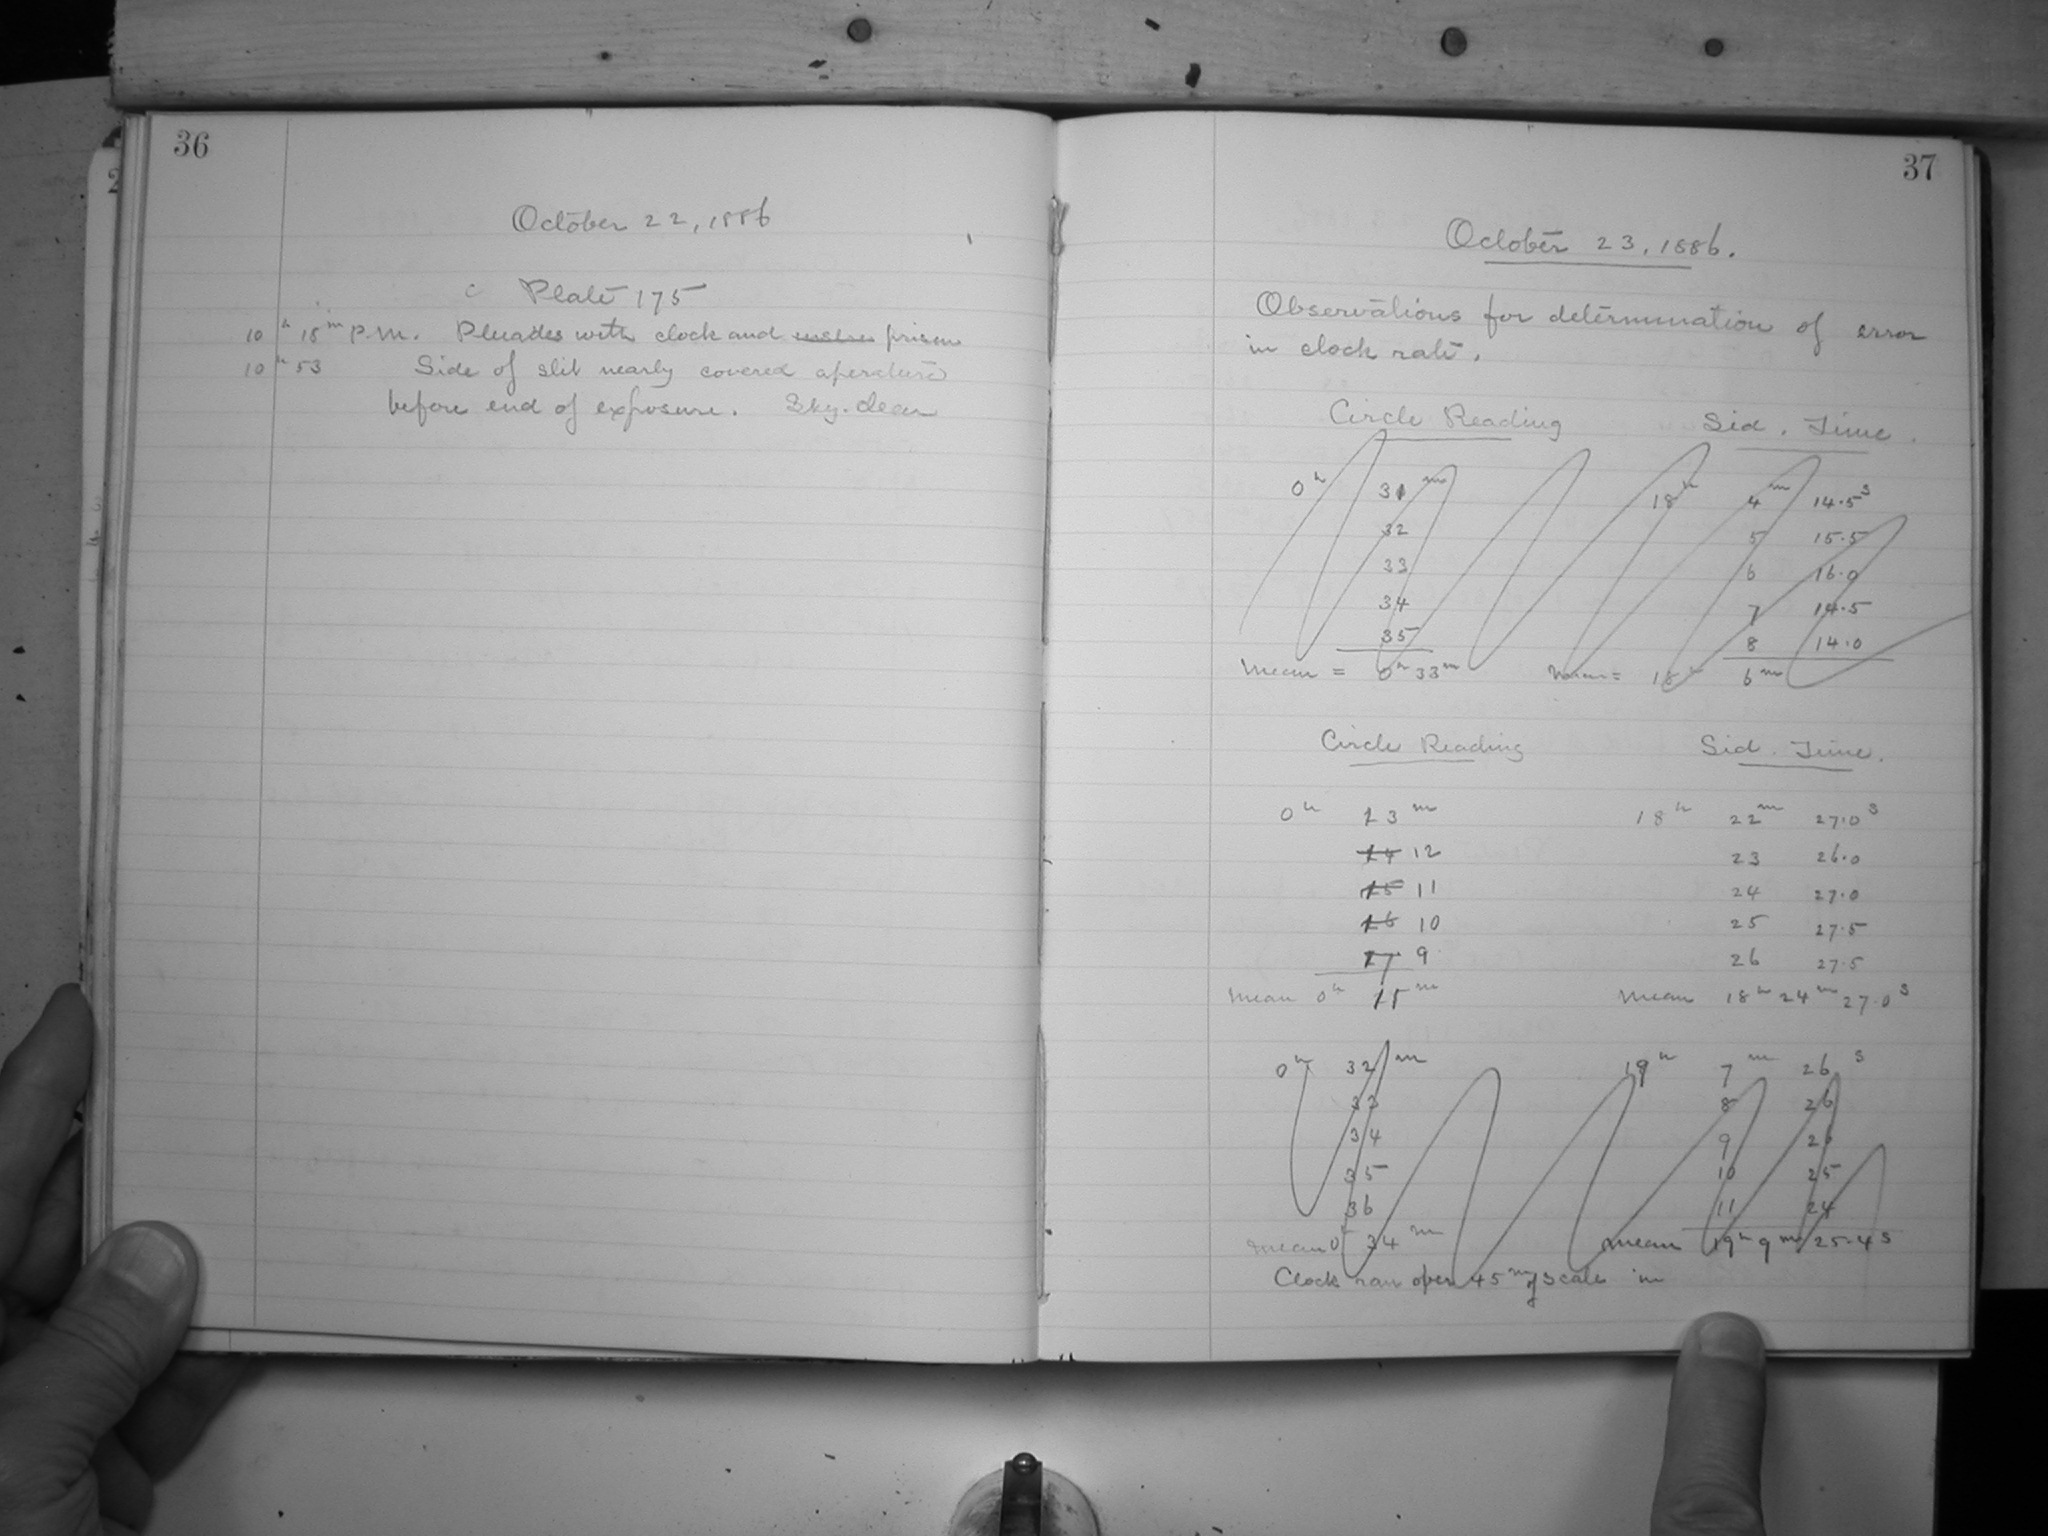 36
October 22, 1886
c Plate 175
10 h 18 m P.M. Pleiades with clock and prism
10 h 53 Side of slit nearly covered aperture
before end of exposure. Sky. clear
37
October 23, 1886.
Observations for determination of error
in clock rate.
Circle Reading Sid. Time.
0 h 31 m 18 h 4 m 14.5 s
32 5 15.5
33 6 16.0
34 7 14.5
35 8 14.0
Mean = 0 h 33 m Mean = 18 h 6 m
Circle Reading Sid. Time.
0 h 13 m 18 h 22 m 27.0 s
14 12 23 26.0
15 11 24 27.0
16 10 25 27.5
17 9 26 27.5
Mean 0 h 15 m Mean 18 h 24 m 27.0 s
0 h 32 m 19 h 7 m 26 s
33 8 26
34 9 26
35 10 25
36 11 24
Mean 0 h 34 m Mean 19 h 9 m 25.4 s
Clock ran over 45 m of scale in